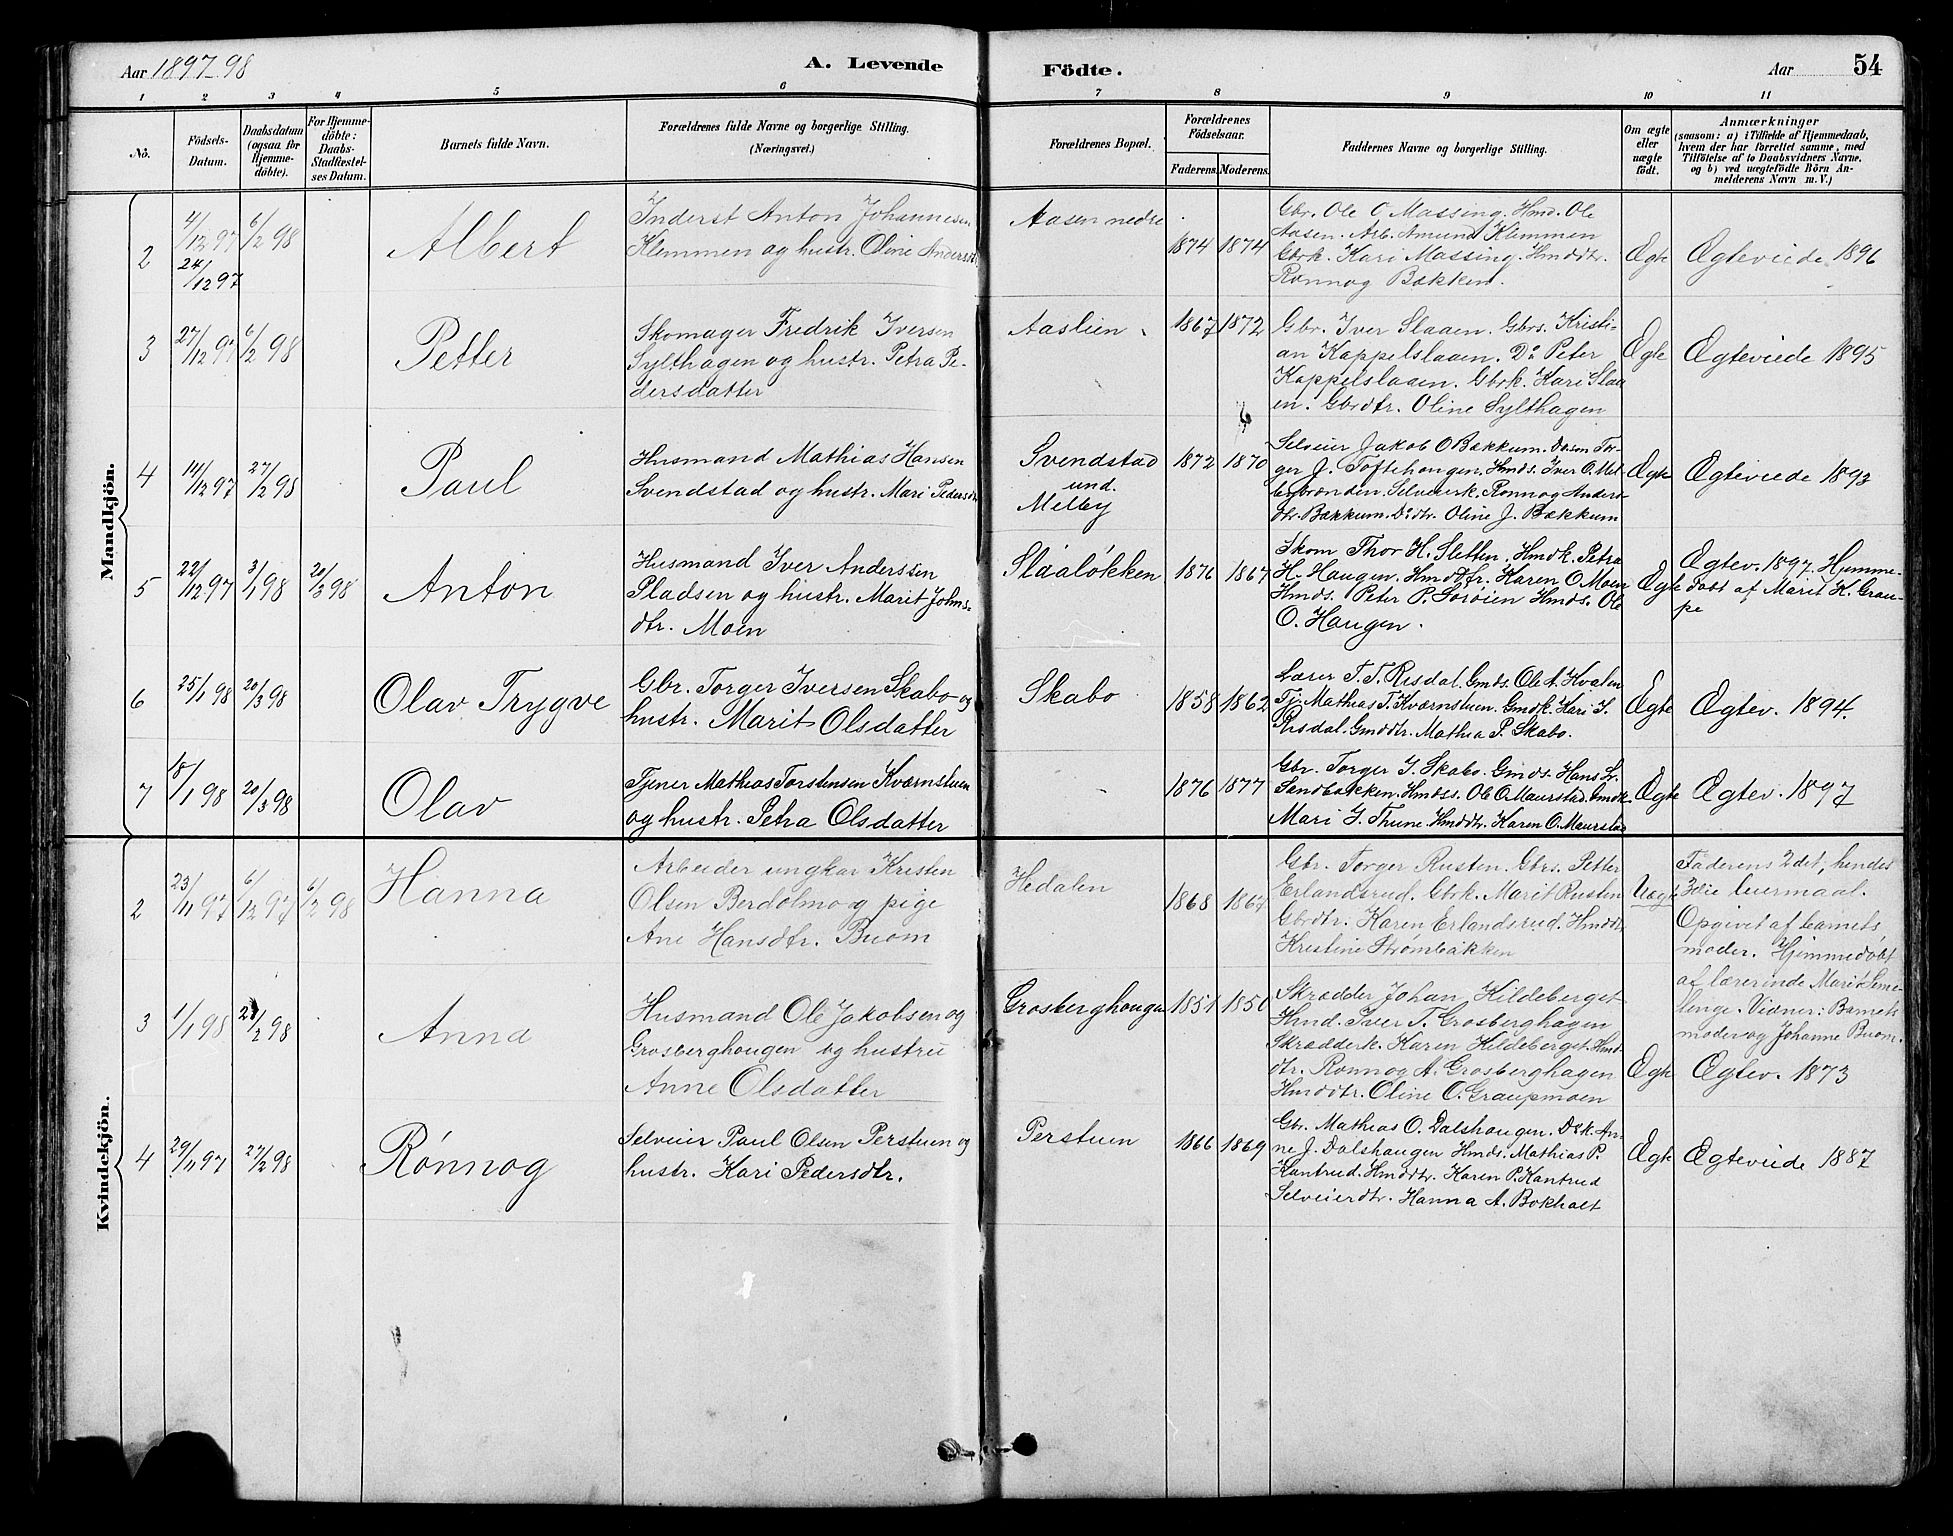 Aar 1897-98
A. Levende
Födte.
Aar
54
1 2 3 4 5 6 7 8 9 10 11
No.
Födsels-
Datum.
Daabsdatum
(ogsaa for
Hjemme-
döbte).
For Hjemme-
döbte:
Daabs-
Stadfæstel-
ses Datum.
Barnets fulde Navn.
Forældrenes fulde Navne og borgerlige Stilling.
(Næringsvei.)
Forældrenes Bopæl.
Forældrenes
Födselsaar.
Faderens. Moderens.
Faddernes Navne og borgerlige Stilling.
Om ægte
eller
uægte
födt.
Anmærkninger
(saasom: a) i Tilfælde af Hjemmedaab,
hvem der har forrettet samme, med
Tilföielse af to Daabsvidners Navne,
og b) ved uægtefödte Börn An-
melderens Navn m. V.)
Mandkjön.
2
4/12 97
24/12 97
6/2 98
Albert
Inderst Anton Johannesen
Klemmen og hustr. Oline Andersdt.
Aasen nedre
1874 1874
Gbr. Ole O Massing. Hmd. Ole
Aasen. Arb. Amund Klemmen
Gbrk. Kari Massing. Hmddtr.
Rønnog Bakken.
Ægte
Ægteviede 1896
3
27/12 97
6/2 98
Petter
Skomager Fredrik Iversen
Sylthagen og hustr. Petra Pe-
dersdatter
Aaslien
1867 1872
Gbr. Iver Slaaen. Gbrs. Kristi-
an Kappelslaaen. Do Peter
Kappelslaaen. Gbrk. Kari Slaa
en. Gbrdtr. Oline Sylthagen
Ægte
Ægteviede 1895
4
14/12 97
27/2 98
Paul
Husmand Mathias Hansen
Svendstad og hustr. Mari Pedersdt
Svendstad
und.
Melby
1872 1870
Selveier Jakob O Bækkum. Do søn Tor-
ger J. Toftehougen. Hmds. Iver O. Mel-
bybrænden. Selveierk. Rønnog Anders-
dtr. Bækkum. Do dtr. Oline J. Bækkum
Ægte
Ægteviede 1893
5
22/12 97
3/1 98
20/3 98
Anton
Husmand Iver Anderssen
Pladsen og hustr. Marit Johns-
dtr. Moen
Slåaløkken
1876 1867
Skom Thor H. Sletten. Hmdk. Petra
H. Haugen. Hmddtr. Karen O. Moen
Hmds. Peter P. Sørøien Hmds. Ole
O. Haugen.
Ægte
Ægtev. 1897. Hjemme-
døbt af Marit K. Grau-
pe
6
25/1 98
20/3 98
Olav Trygve
Gbr. Torger Iversen Skabo og
hustr. Marit Olsdatter
Skabo
1858 1862
Lærer T. T. Risdal. Gmds. Ole A. Kvalen
Tj. Mathias T. Kværnstuen. Gmdk. Kari I.
Risdal. Gmddtr. Mathea P. Skabo.
Ægte
Ægtev. 1894.
7
18/1 98
20/3 98
Olav
Tjener Mathias Torstensen Kværnstuen
og hustr. Petra Olsdatter
1876 1877
Gbr. Torger I. Skabo. Gmds. Hans L.
Sandbakken. Hmdss. Ole O. Maurstad. Gmdk.
Mari G. Thune. Hmddtr. Karen O. Maurstad
Ægte
Ægtev. 1897
Kvindekjön.
2
23/11 97
6/12 97
6/2 98
Hanna
Arbeider ungkar Kristen
Olsen Berdølmo og pige
Ane Hansdtr. Buom
Hedalen
1868 1867
Gbr. Torger Rusten. Gbrs. Petter
Erlandsrud. Gbrk. Marit Rusten
Gbrdtr. Karen Erlandsrud. Hmddtr
Kristine Strømbakken
Uægte
Faderens 2det, hendes
3die leiermaal.
Opgivet af barnets
moder. Hjemmedøbt
af lærerinde Mari Seme-
lenge. Vidner: Barnets
moder og Johanne Buom.
3
1/1 98
27/2 98
Anna
Husmand Ole Jakobsen og
Grosberghougen og hustru
Anne Olsdatter
Grosberghougen
1851 1850
Skrædder Johan Kildeberget
Hmd. Iver T. Grosberghagen
Skrædderk. Karen Kildeberget. Hmd-
dtr. Rønnog A. Grosberghagen
Hmddtr. Oline O. Graupmoen
Ægte
Ægtev. 1873
4
29/11 97
27/2 98
Rønnog
Selveier Paul Olsen Perstuen og
hustr. Kari Pedersdtr.
Perstuen
1866 1869
Gbr. Mathias O. Dalshaugen. Do k. An-
ne J. Dalshaugen Hmds. Mathias P.
Kantrud. Hmddtr. Karen P. Kantrud
Selveierdtr. Hanna A. Bokhalt
Ægte
Ægteviede 1887